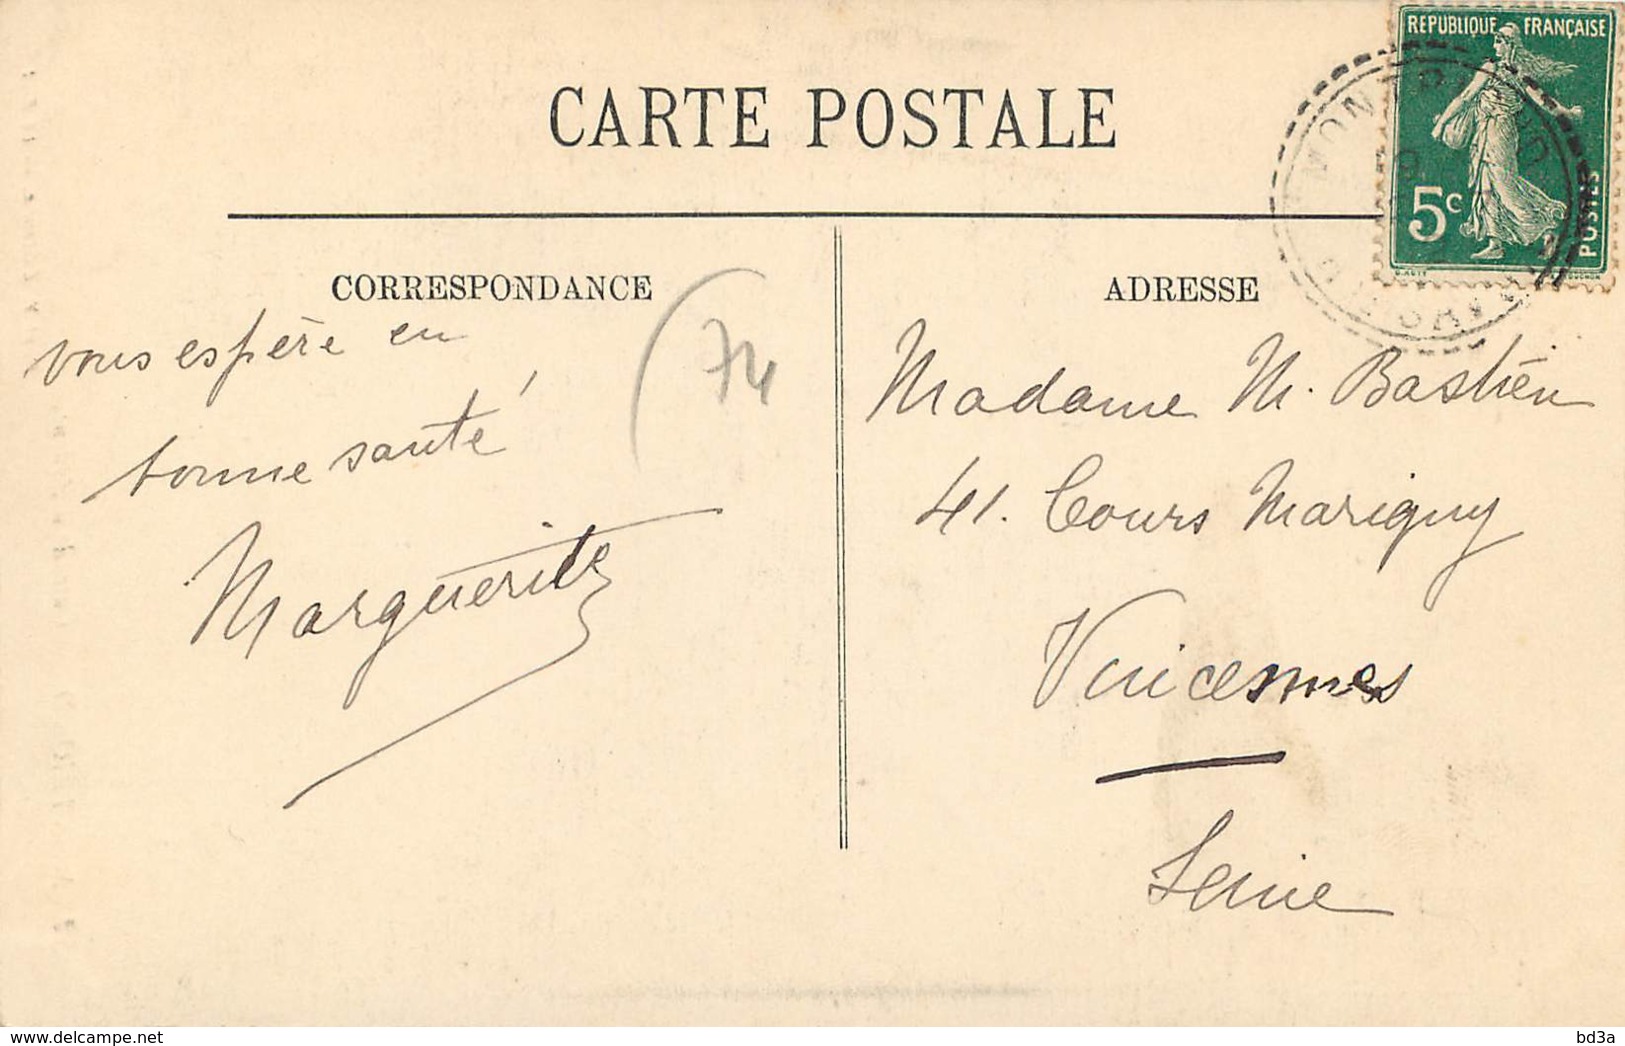 CARTE POSTALE
REPUBLIQUE FRANÇAISE
5c
POSTES
CORRESPONDANCE
vous espère en
bonne santé
Marguerite
74
ADRESSE
Madame M. Bastien
41. Cours Marigny
Vincennes
Seine
delcampe.net
bd3a